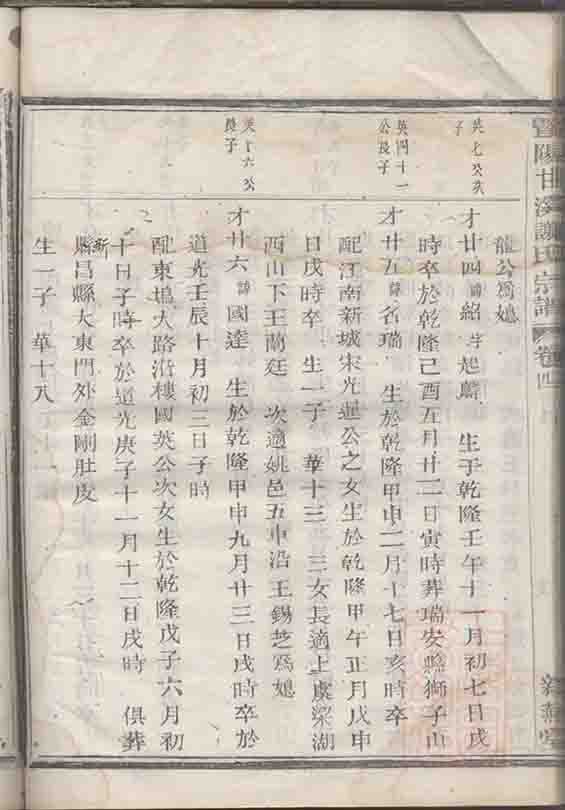 暨陽甘溪謝氏宗譜 卷四
龍公為媳
英七公次子
才廿四諱紹 字起麟 生于乾隆壬午十一月初七日戌
時卒於乾隆己酉五月廿二日寅時葬瑞安縣獅子山
英四十一公長子
才廿五諱名瑞 生於乾隆甲申二月十七日亥時卒
配江南新城宋光蓮公之女生於乾隆甲午正月戊申
日戌時卒 生一子 華十三 三女長適上虞梁湖
西山下王蘭廷 次適姚邑五車沿王錫芝為媳
英十六公長子
才廿六諱國達 生於乾隆甲申九月廿三日戌時卒於
道光壬辰十月初三日子時
配東塢大路沿樓國英公次女生於乾隆戊子六月初
十日子時卒於道光庚子十一月十二日戌時 俱葬
新昌縣大東門外金剛肚皮
生一子 華十八